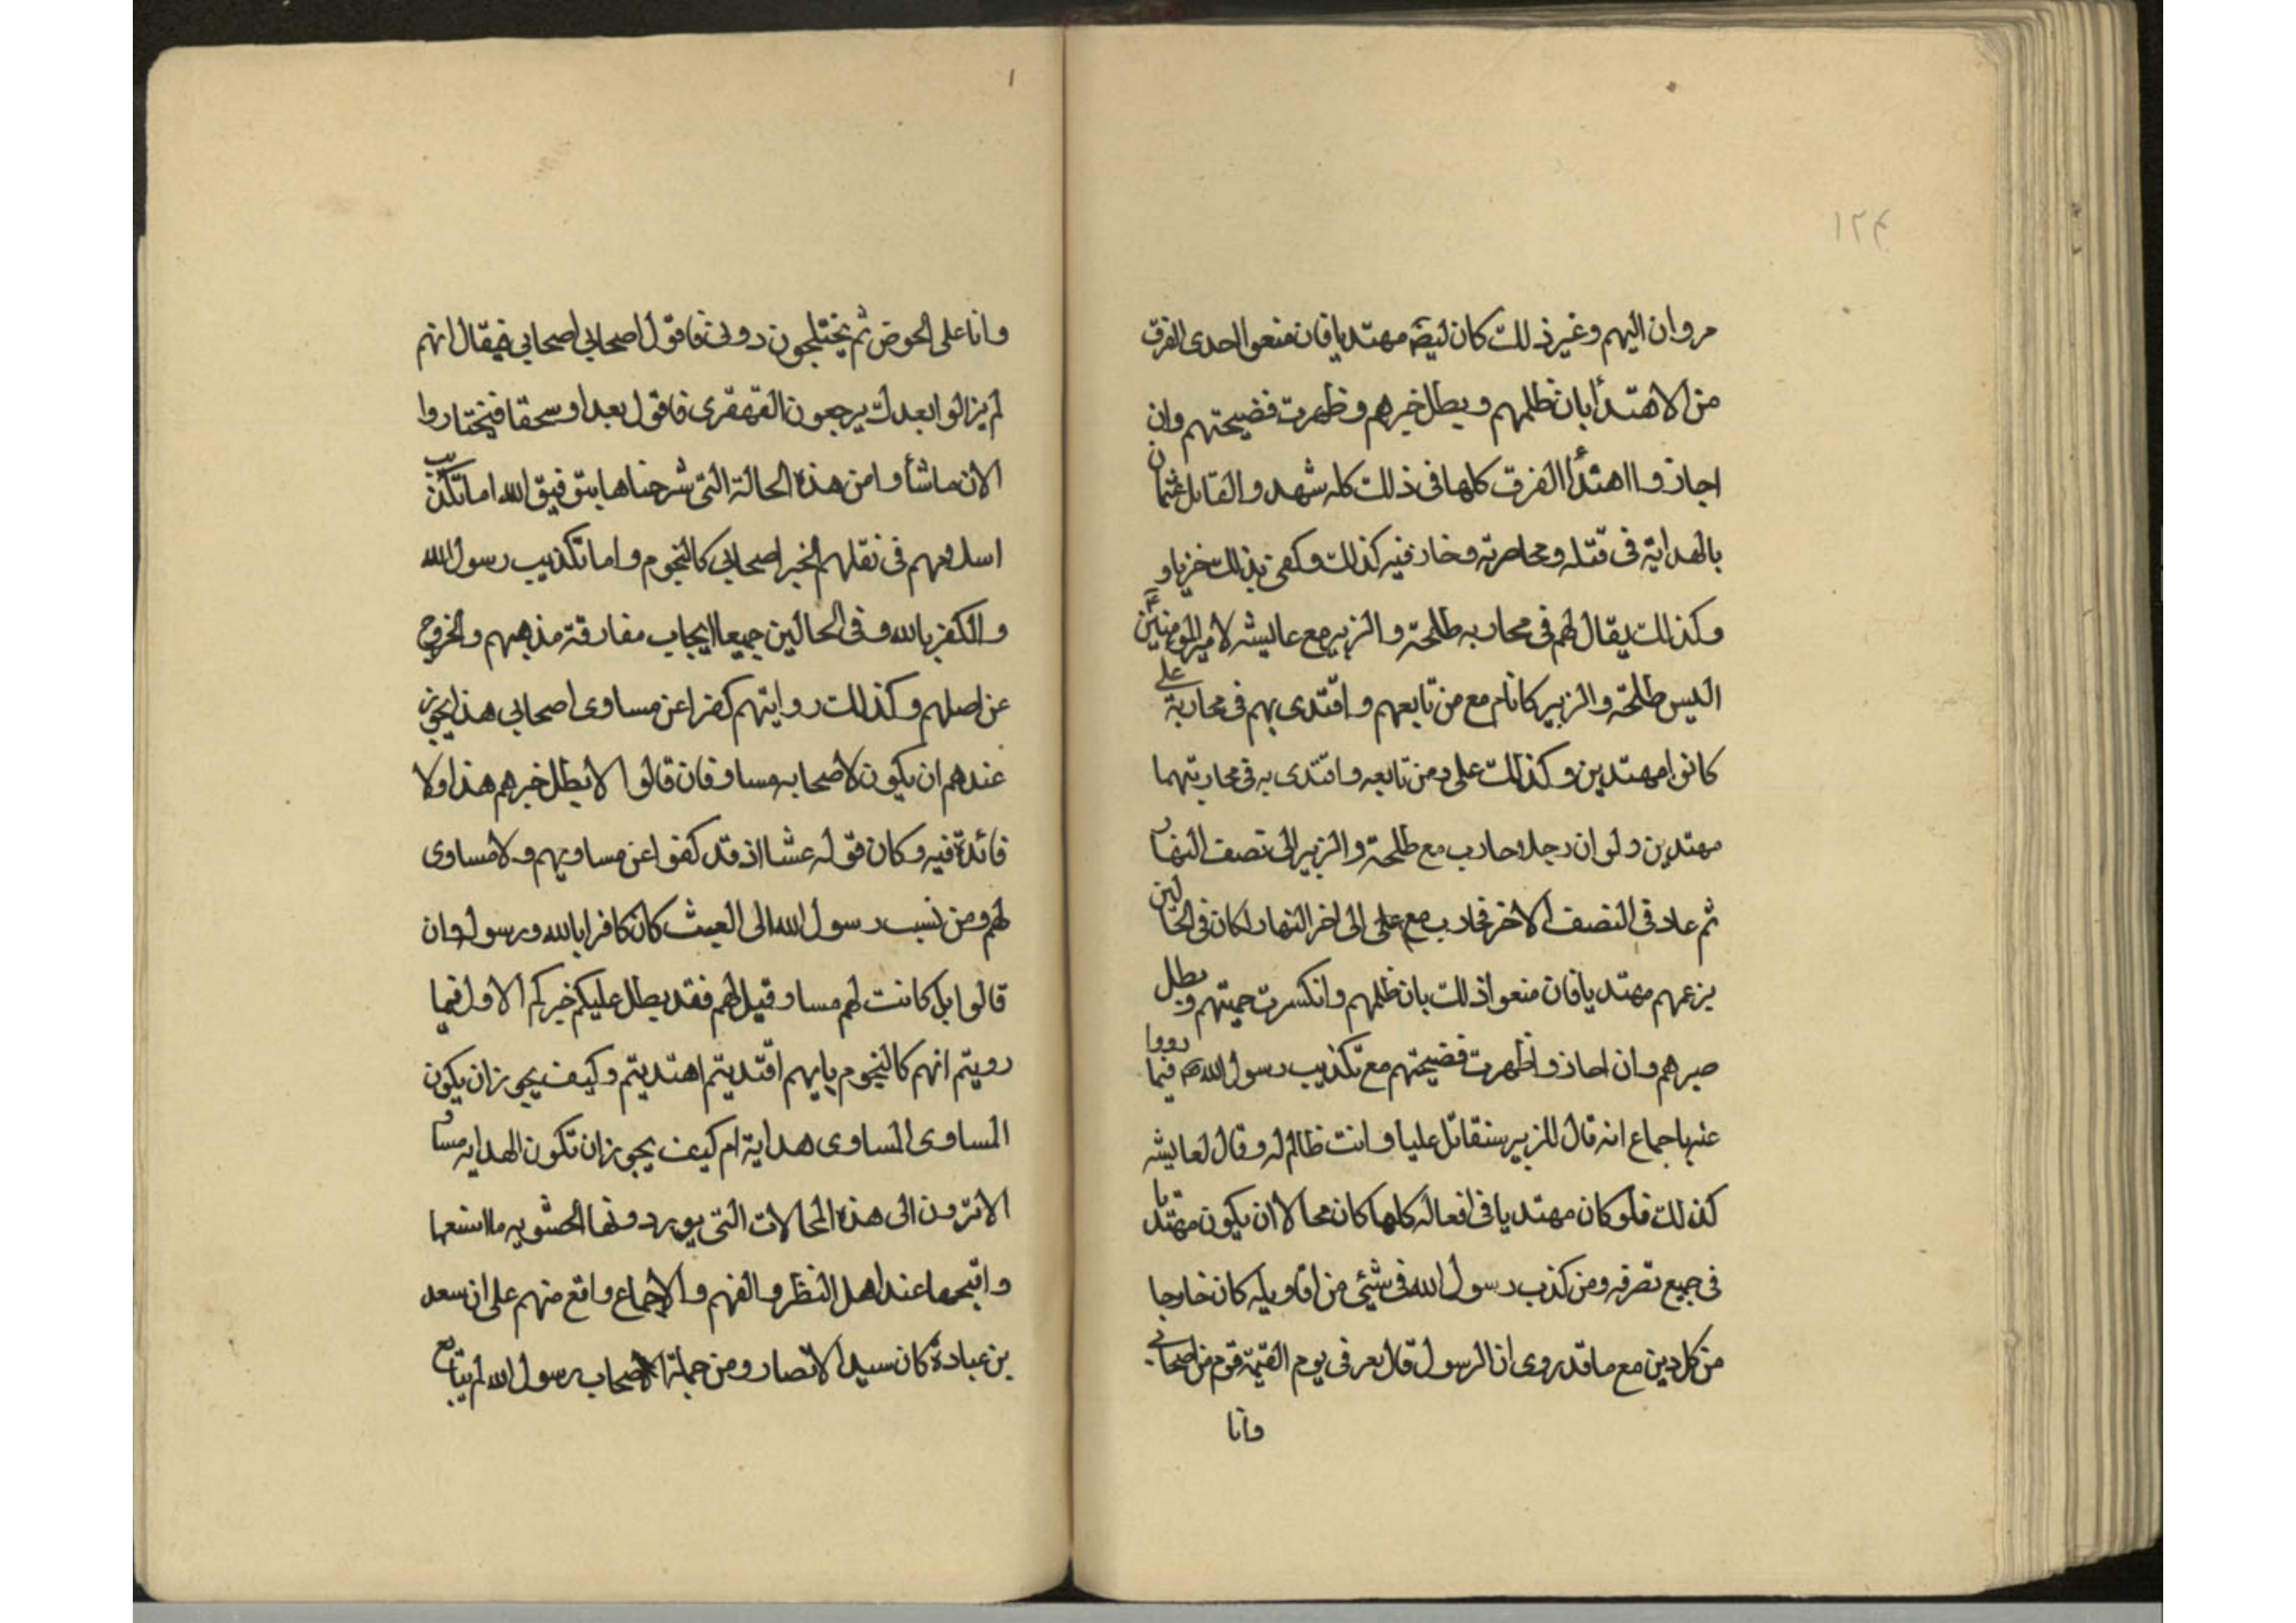 ١٢٤
مروان اليهم وغير ذلك كان ليضه مهتديا فان منعوا احدى الفرق
من الاهتدأ بان ظلمهم وبطل خبرهم وظهرت فضيحتهم وان
اجازوا اهتدأ الفرق كلها فى ذلك كله شهد والقاتل عثمان
بالهداية فى قتله ومحاصرته وخاز فيه كذلك وكفى بذلك خزيا و
وكذلك يقال لهم فى محاربه طلحة والزبير مع عايشه لامير المومنين
اليس طلحة والزبير كانا مع من تابعهم واقتدى بهم فى محاربة على
كانوا مهتدين وكذلك على ومن تابعه واقتدى به فى محاربتهما
مهتدين ولو ان رجلا حارب مع طلحة والزبير الى نصف النهار
ثم عاد فى النصف الاخر فحارب مع على الى اخر النهار لكان فى الحالين
بزعمهم مهتديا فان منعوا ذلك بان ظلمهم وانكسرت حميتهم وبطل
خبرهم وان اجازوا ظهرت فضيحتهم مع تكذيب رسول الله ص فيما رووا
عنه باجماع انه قال للزبير ستقاتل عليا وانت ظالم له وقال لعايشه
كذلك فلو كان مهتديا فى افعاله كلها كان محالا ان يكون مهتديا
فى جميع تصرفه ومن كذب رسول الله فى شيئى من اقاويله كان خارجا
من كل دين مع ما قد روى ان الرسول قال يعرفى يوم القيمة قوم من اصحابى
وانا
١
وانا على الحوض ثم يختلجون دونى فاقول اصحابى اصحابى فيقال انهم
لم يزالوا بعدك يرجعون القهقرى فاقول بعدا وسحقا فيختاروا
الان ما شأوا من هذه الحالة التى شرحناها بتوفيق الله اما تكذيب
اسلافهم فى نقلهم الخبر اصحابى كالنجوم واما تكذيب رسول الله
والكفر بالله وفى الحالين جميعا ايجاب مفارقة مذهبهم والخروج
عن اصلهم وكذلك روايتهم كفوا عن مساوى اصحابى هذا يجوز
عندهم ان يكون لاصحابه مساو فان قالوا لا بطل خبرهم هذا ولا
فائدة فيه وكان قوله عبثا اذ قد كفوا عن مساويهم ولا مساوى
لهم ومن نسب رسول الله الى العبث كان كافرا بالله ورسوله وان
قالوا بل كانت لهم مساو قيل لهم فقد بطل عليكم خبركم الاول فيما
رويتم انهم كالنجوم بايهم اقتديتم اهتديتم وكيف يجوز ان يكون
المساوى المساوى هداية ام كيف يجوز ان تكون الهدايه مساو
الا ترون الى هذه المحالات التى يوردونها الحشويه ما اشنعها
واقبحها عند اهل النظر والفهم والاجماع واقع منهم على ان سعد
بن عبادة كان سيد الانصار ومن جملة اصحاب رسول الله لم يتابع